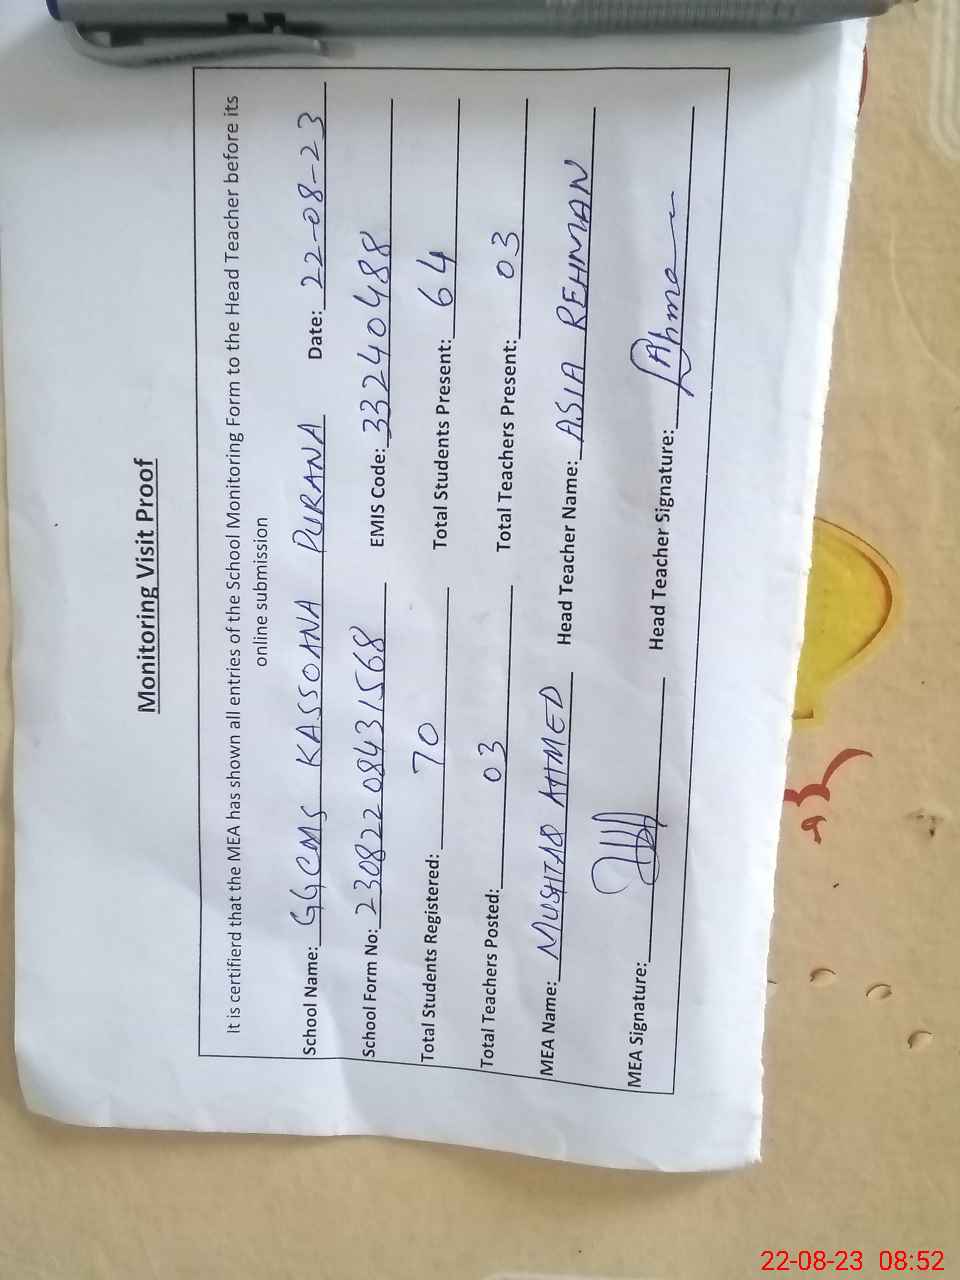 Monitoring Visit Proof
It is certifierd that the MEA has shown all entries of the School Monitoring Form to the Head Teacher before its
online submission
School Name: GGCMS KASSOANA PURANA Date: 22-08-23
School Form No: 230822 08431568 EMIS Code: 33240488
Total Students Registered: 70 Total Students Present: 64
Total Teachers Posted: 03 Total Teachers Present: 03
MEA Name: MUSHTAQ AHMED Head Teacher Name: ASIA REHMAN
MEA Signature: Head Teacher Signature:
22-08-23 08:52